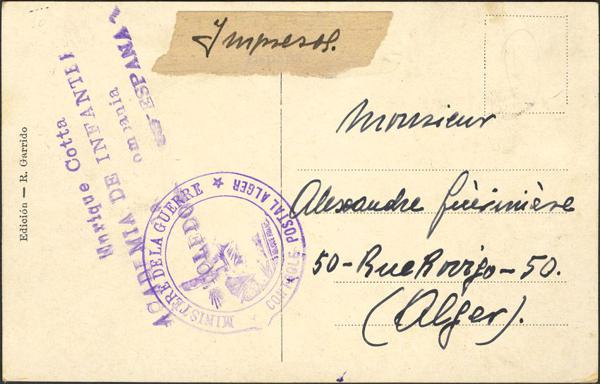 Impresos.
Enrique Cotta
ACADEMIA DE INFANTE
ompania
TOLEDO ESPAÑA
MINISTERE DE LA GUERRE
CONTROLE POSTAL ALGER
Edición — R. Garrido
Monsieur
Alexandre
50-Rue Rovigo-50.
(Alger).